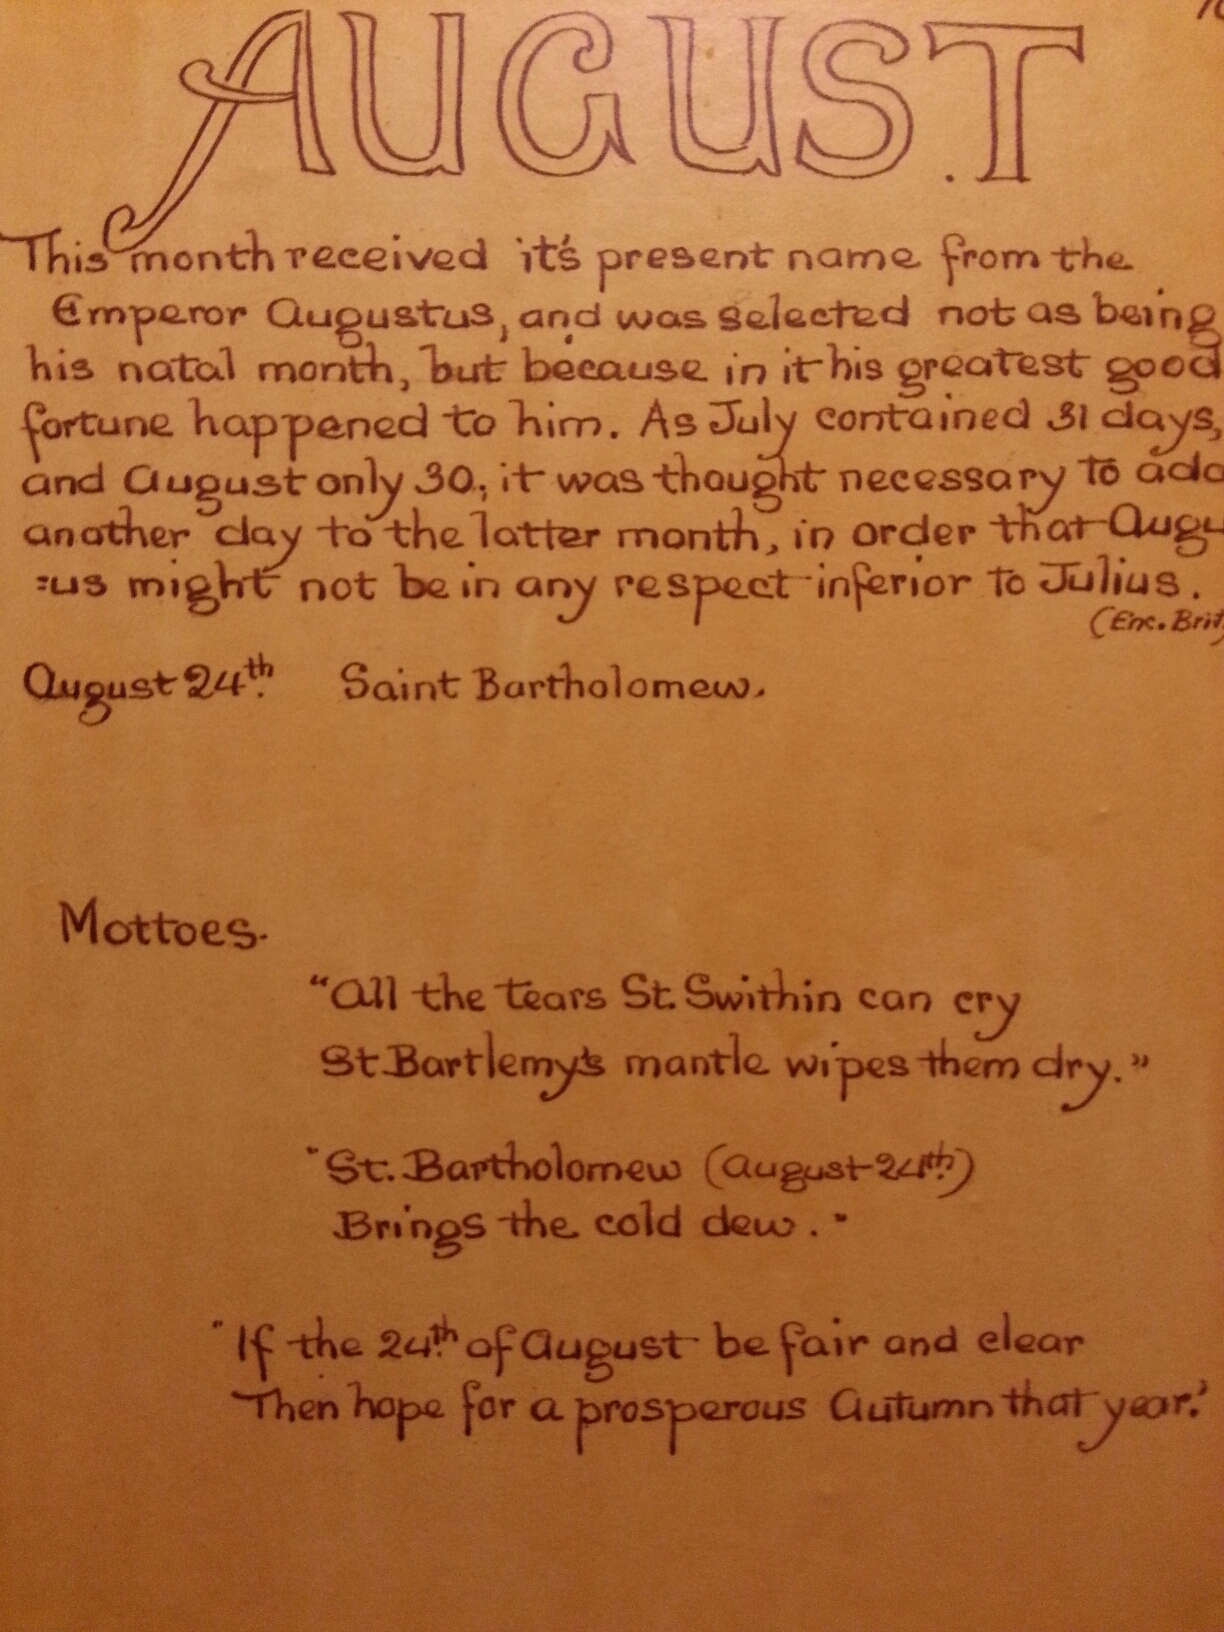 AUGUST
This month received it's present name from the
Emperor Augustus, and was selected not as being
his natal month, but because in it his greatest good
fortune happened to him. As July contained 31 days,
and August only 30, it was thought necessary to add
another day to the latter month, in order that Augu
=us might not be in any respect inferior to Julius.
(Enc. Brit)
August 24th. Saint Bartholomew.
Mottoes.
"All the tears St. Swithin can cry
St. Bartlemy's mantle wipes them dry."
"St. Bartholomew (August 24th.)
Brings the cold dew."
"If the 24th. of August be fair and clear
Then hope for a prosperous Autumn that year."